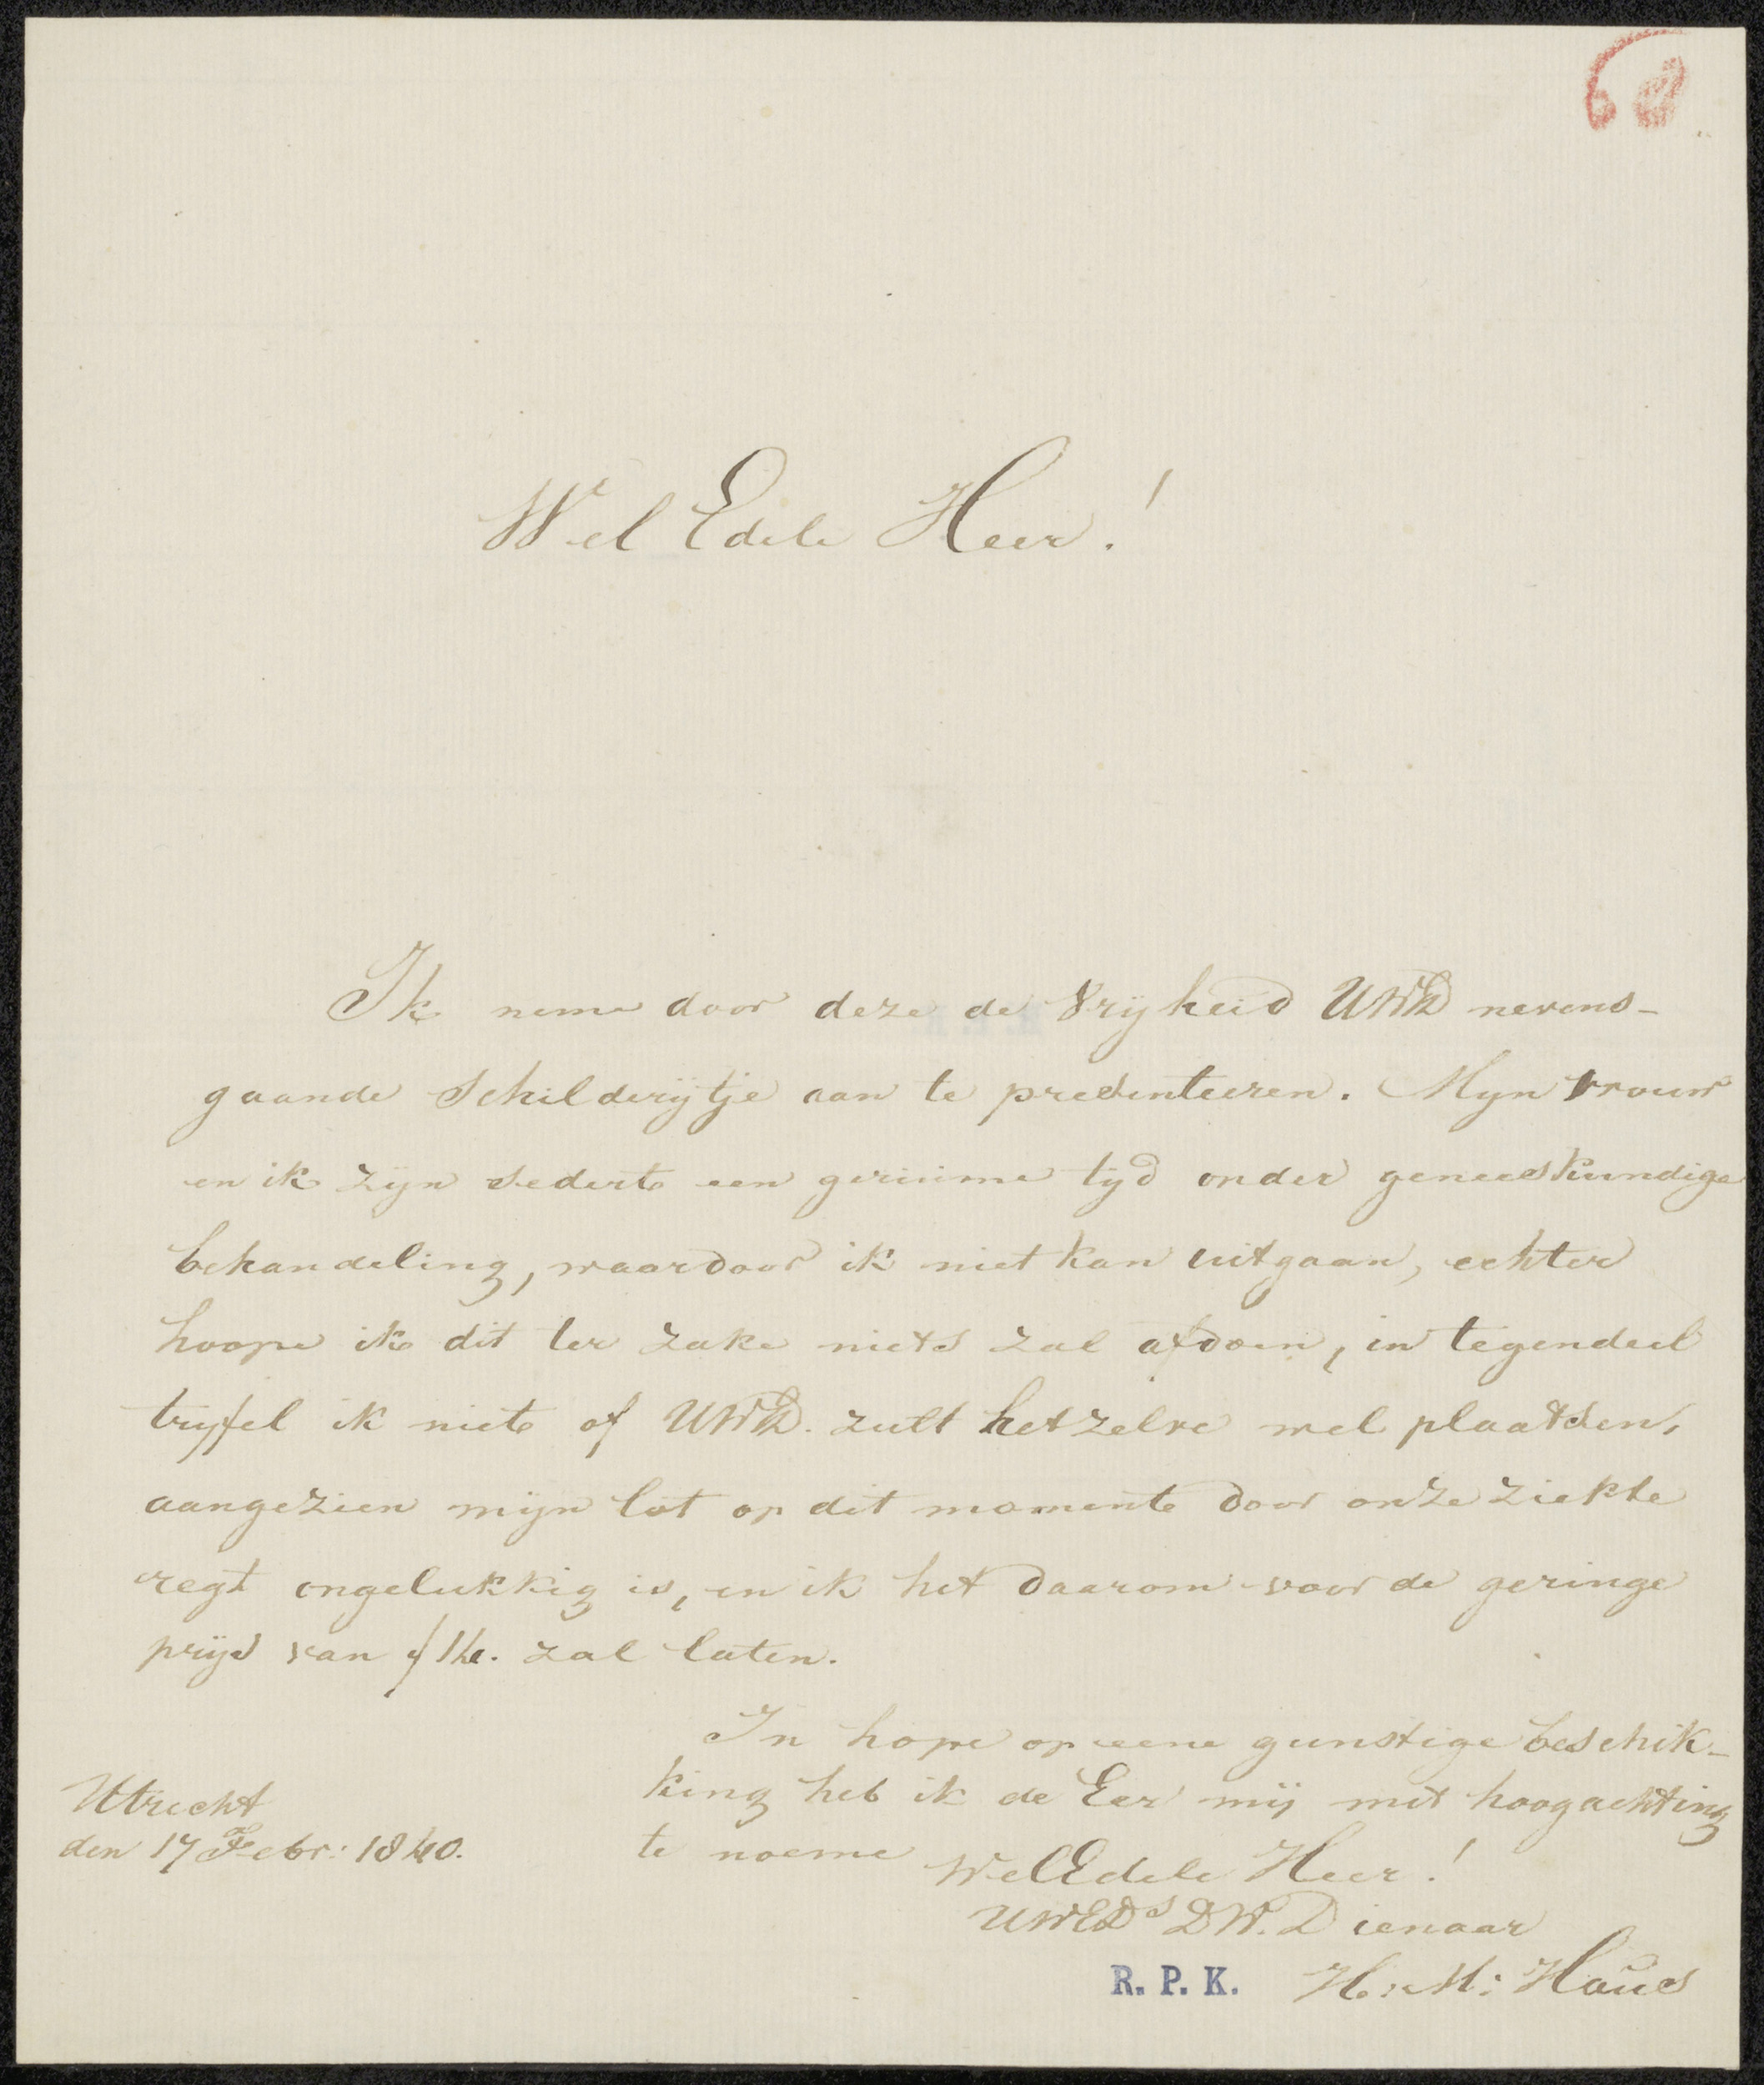 Wel Edele Heer!
Ik neme door deze de Vrijheid UWEd nevens-
gaande Schilderijtje aan te presenteeren. Mijn vrouw
en ik zijn sederte een geruime tijd onder geneeskundige
behandeling, waardoor ik niet kan uitgaan, echter
hoope ik dit ter zake niets zal afdoen, in tegendeel
twyfel ik niet of UWEd. zult hetzelve wel plaatsen,
aangezien mijn lot op dit momente door onze ziekte
regt ongelukkig is, en ik het daarom voor de geringe
prijs van zal laten.
In hope op eene gunstige beschik-
king heb ik de Eer mij met hoogachting
te noeme
WelEdele Heer!
UWEDs DW. Dienaar
H: M: Haus
Utrecht
den 17 Febr: 1840.
R. P. K.